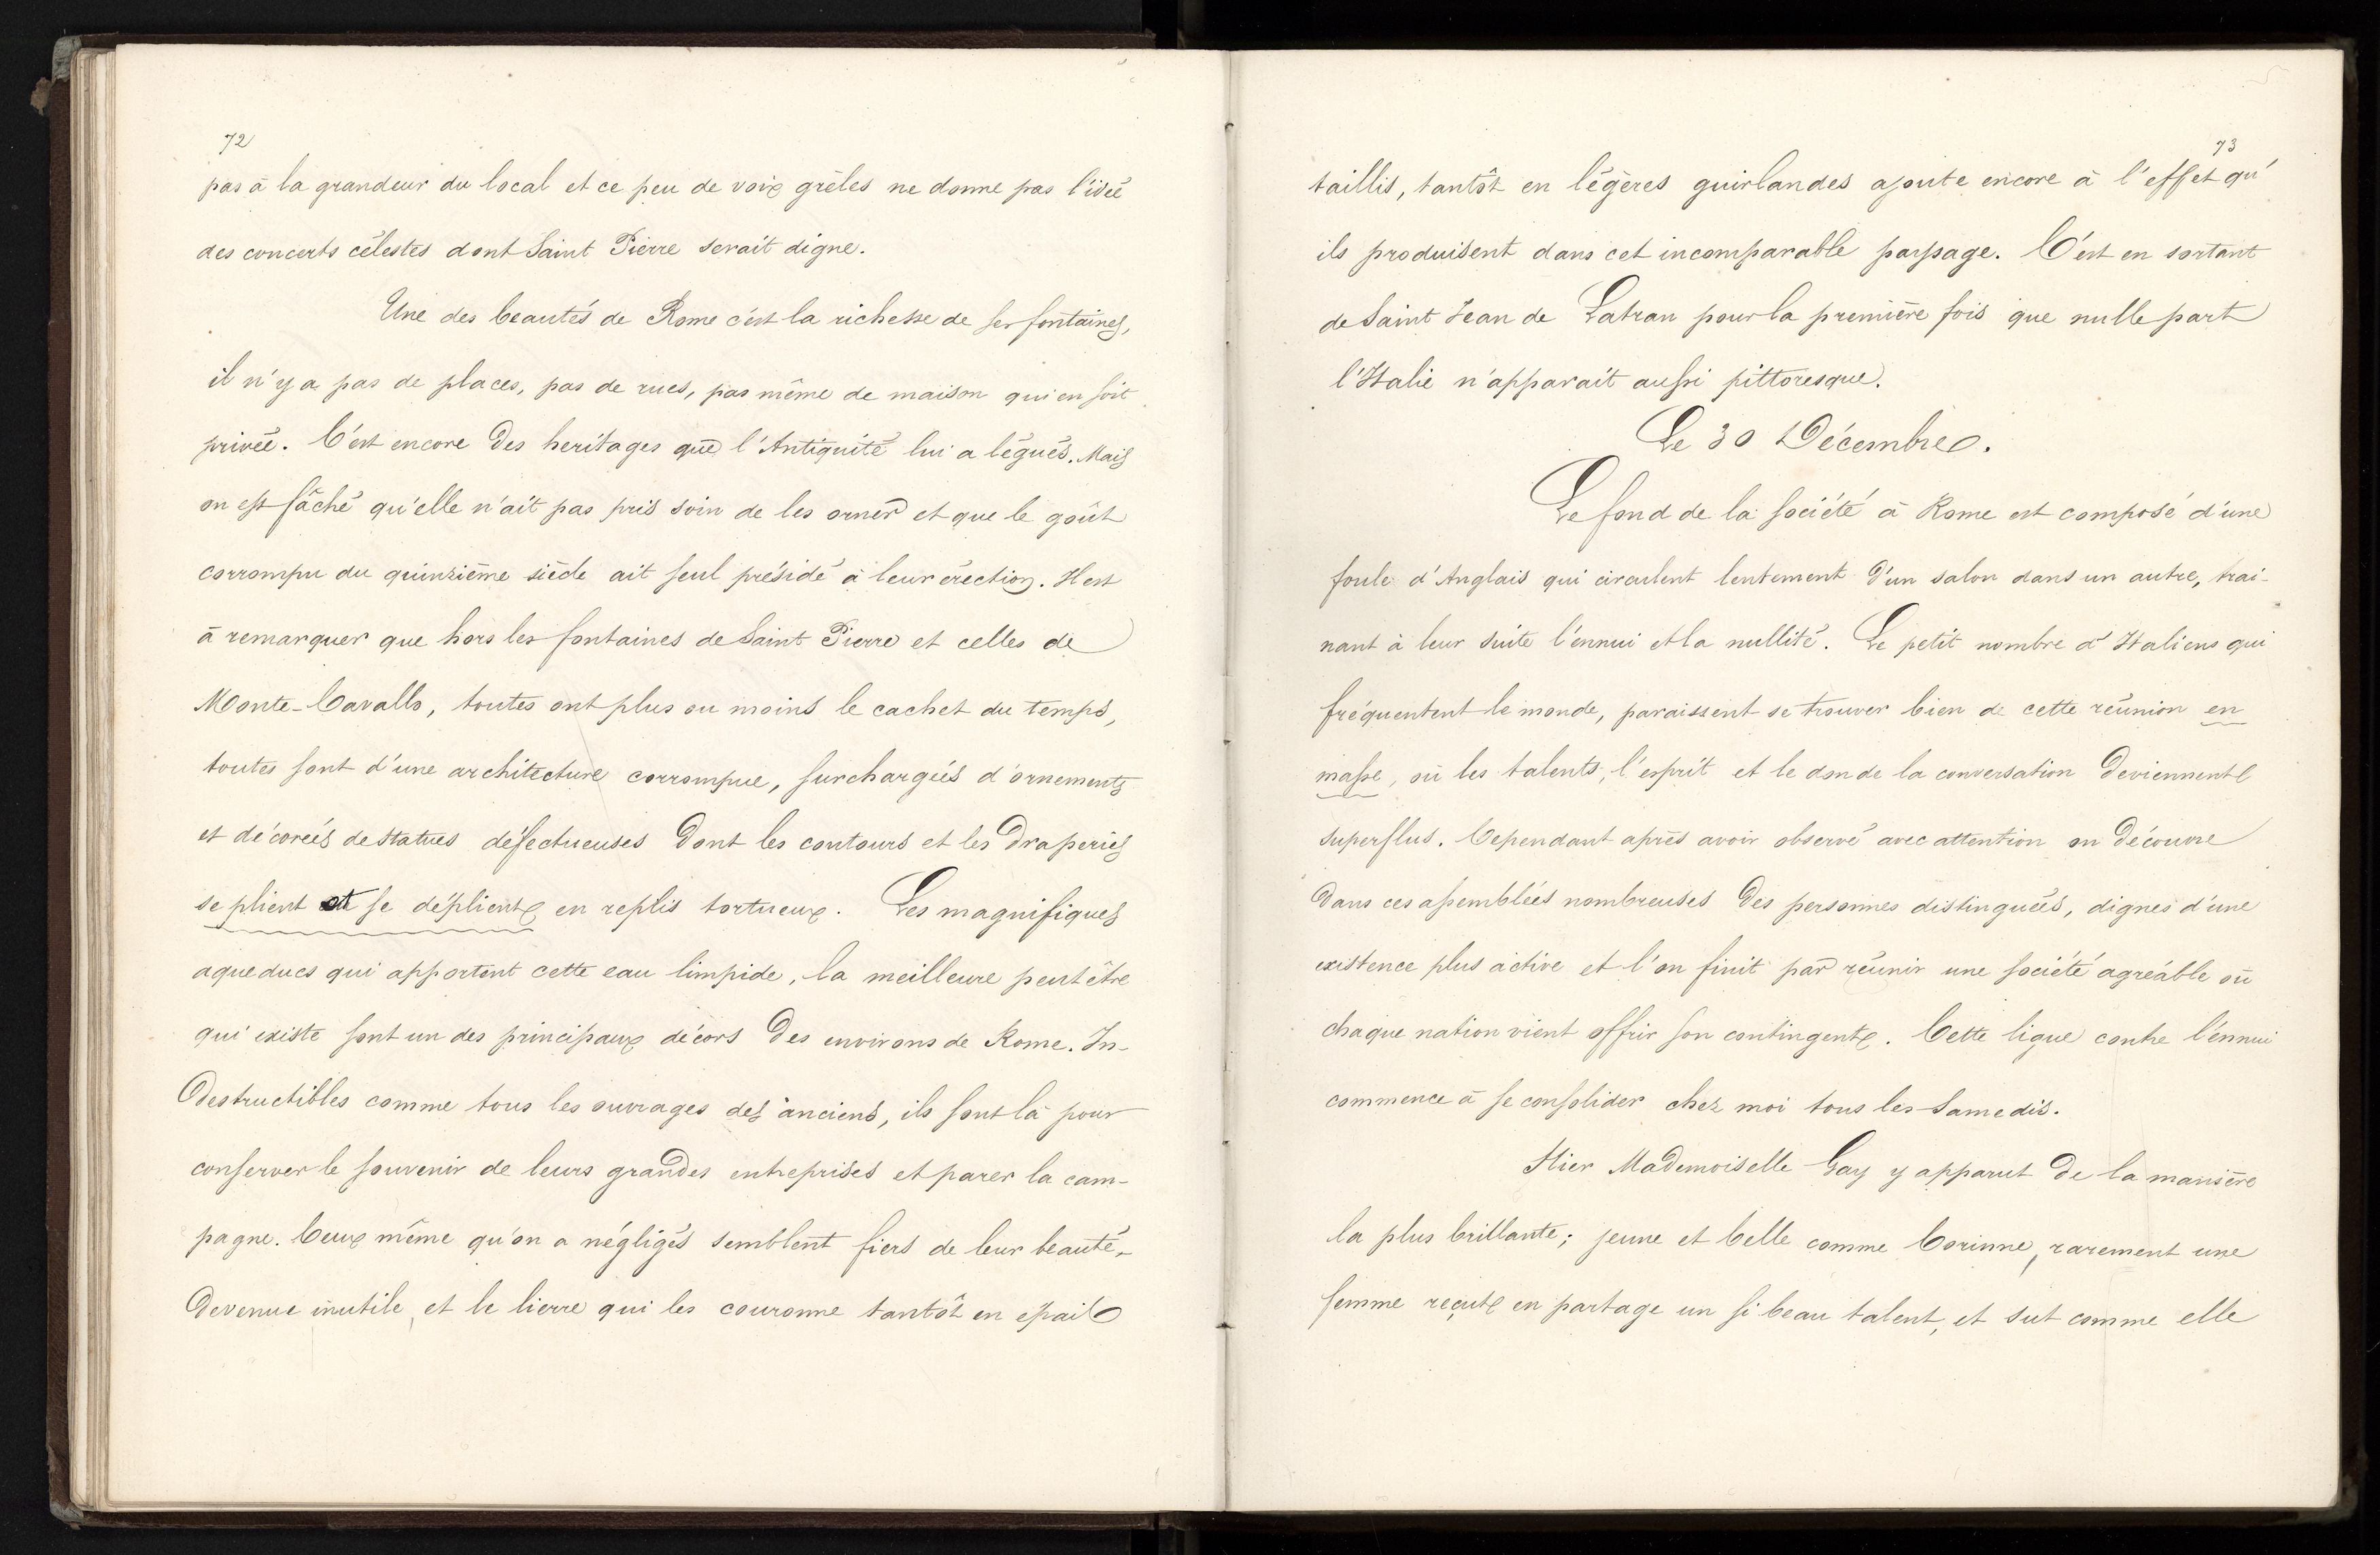 72
pas à la grandeur du local et ce peu de voix grèles ne donne pas l'idée
des concerts célestes dont Saint Pierre serait digne.
Une des beautés de Rome c'est la richesse de ses fontaines,
il n'y a pas de places, pas de rues, pas même de maison qui en soit
privée. C'est encore des heritages que l'Antiquité lui a légués. Mais
on est fâché qu'elle n'ait pas pris soin de les orner et que le goût
corrompu du quinzième siècle ait seul présidé à leur érection. Il est
à remarquer que hors les fontaines de Saint Pierre et celles de
Monte-Cavallo, toutes ont plus ou moins le cachet du temps,
toutes sont d'une architecture corrompue, surchargées d'ornements
et décorées de statues défectueuses dont les contours et les draperies
se plient et se déplient en replis tortueux. Les magnifiques
aqueducs qui apportent cette eau limpide, la meilleure peut être
qui existe sont un des principaux décors des environs de Rome. In-
destructibles comme tous les ouvrages des anciens, ils sont là pour
conserver le souvenir de leurs grandes entreprises et parer la cam-
pagne. Ceux même qu'on a négligés semblent fiers de leur beauté
devenue inutile, et le lierre qui les couronne tantôt en epail
73
taillis, tantôt en légères guirlandes ajoute encore à l'effet qu'
ils produisent dans cet incomparable paysage. C'est en sortant
de Saint Jean de Latran pour la première fois que nulle part
l'Italie n'apparait aussi pittoresque.
Le 30 Décembre.
Le fond de la société à Rome est composé d'une
foule d'Anglais qui circulent lentement d'un salon dans un autre, trai-
nant à leur suite l'ennui et la nullité. Le petit nombre d'Italiens qui
fréquentent le monde, paraissent se trouver bien de cette réunion en
masse, où les talents, l'esprit et le don de la conversation deviennent
superflus. Cependant après avoir observé avec attention on découvre
dans ces assemblées nombreuses des personnes distinguées, dignes d'une
existence plus active et l'on finit par réunir une société agréable où
chaque nation vient offrir son contingent. Cette ligue contre l'ennui
commence à se consolider chez moi tous les Samedis.
Hier Mademoiselle Gay y apparut de la manière
la plus brillante; jeune et belle comme Corinne, rarement une
femme reçut en partage un si beau talent, et sut comme elle